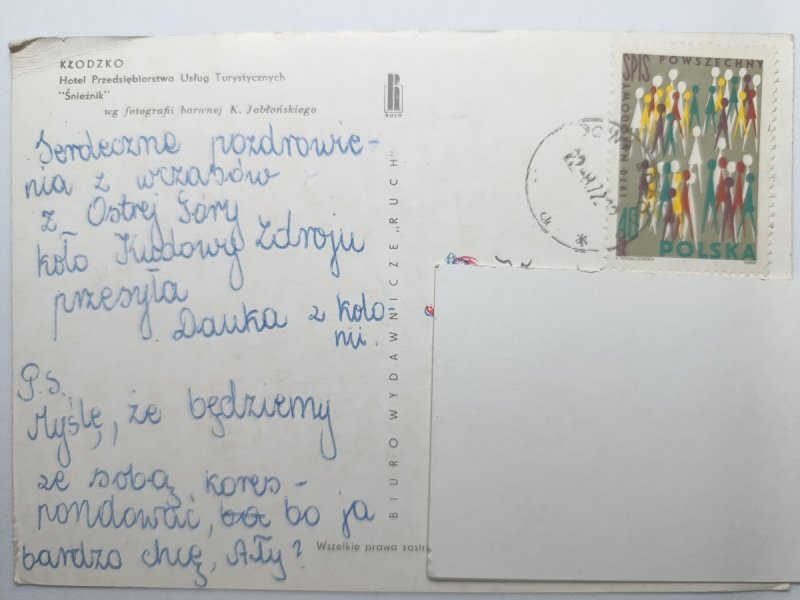 KŁODZKO
Hotel Przedsiębiorstwa Usług Turystycznych
"Śnieżnik"
wg fotografii barwnej K. Jabłońskiego
Serdeczne pozdrowie-
nia z wczasów
z Ostrej Góry
koło Kudowy Zdroju
przesyła
Danka z kolo
nii.
P.S.
Myślę, że będziemy
ze sobą kores-
pondować, bo ja
bardzo chcę, A Ty?
RUCH
BIURO WYDAWNICZE „RUCH"
Wszelkie prawa zastr
SPIS POWSZECHNY
1970 NARODOWY
POLSKA